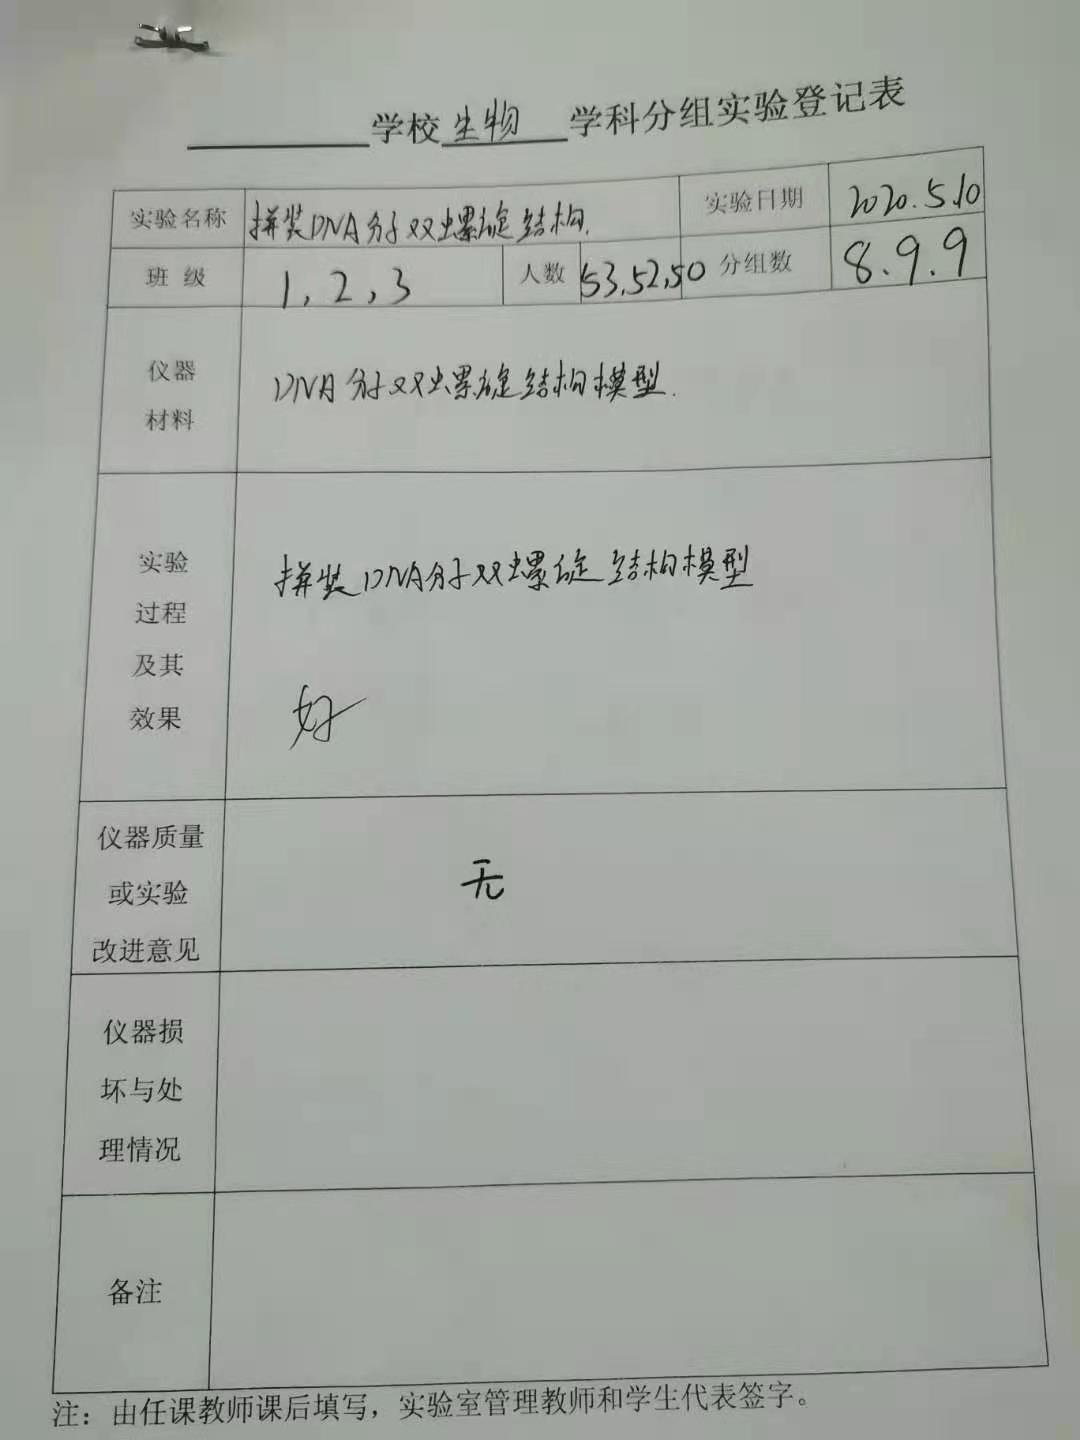 学校 生物 学科分组实验登记表
实验名称 拼装DNA分子双螺旋结构. 实验日期 2020.5.10
班 级 1,2,3 人数 53,52,50 分组数 8.9.9
仪器
材料
DNA分子双螺旋结构模型.
实验
过程
及其
效果
拼装DNA分子双螺旋结构模型
好
仪器质量
或实验
改进意见
无
仪器损
坏与处
理情况
备注
注：由任课教师课后填写，实验室管理教师和学生代表签字。